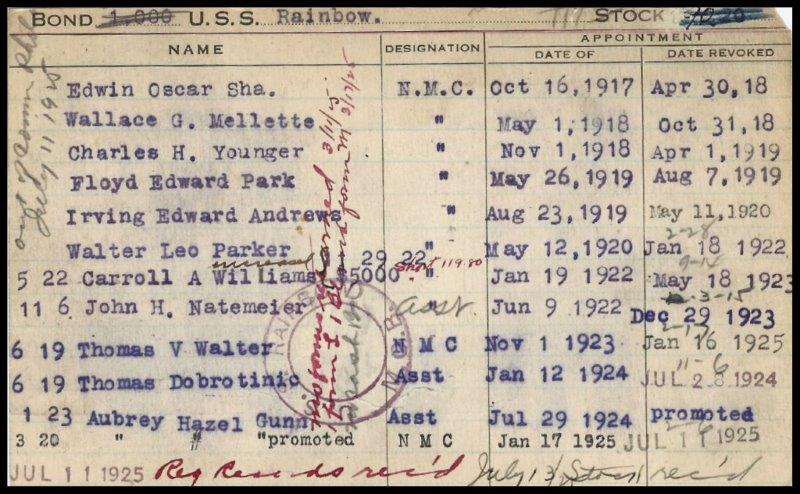 BOND 1,000 U.S.S. Rainbow. STOCK
NAME DESIGNATION APPOINTMENT
DATE OF DATE REVOKED
Edwin Oscar Sha. N.M.C. Oct 16,1917 Apr 30,18
Wallace G. Mellette " May 1,1918 Oct 31,18
Charles H. Younger " Nov 1,1918 Apr 1,1919
Floyd Edward Park " May 26,1919 Aug 7,1919
Irving Edward Andrews " Aug 23,1919 May 11,1920
2-28
Walter Leo Parker " May 12,1920 Jan 18 1922
29 22
9-14
5 22 Carroll A Williams $5000 short 119.80 " Jan 19 1922 May 18 1923
3-15
11 6 John H. Natemeier Asst " Jun 9 1922 Dec 29 1923
2-17
6 19 Thomas V Walter N M C Nov 1 1923 Jan 16 1925
11-6
6 19 Thomas Dobrotinic Asst Jan 12 1924 JUL 28 1924
1 23 Aubrey Hazel Gunn Asst Jul 29 1924 promoted
2-6
3 20 " " " promoted N M C Jan 17 1925 JUL 11 1925
JUL 11 1925 Reg Records rec'd July 13/ Stock rec'd